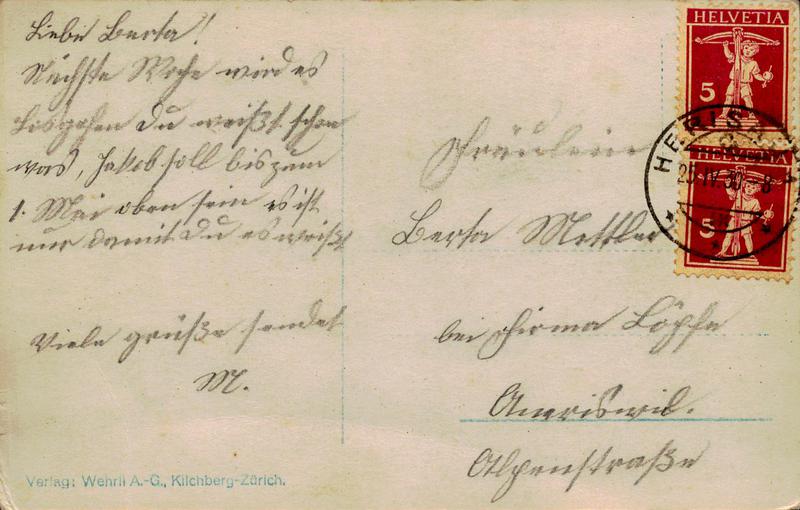 Liebe Berta!
Nächste Woche wird es
losgehen Du weißt schon
was, Jakob soll bis zum
1. Mai oben sein es ist
nur damit Du es weißt
Viele grüße sendet
M.
Verlag: Wehrli A.-G., Kilchberg-Zürich.
HELVETIA
5
HERISAU
25.IV.30.-8
HELVETIA
5
Fräulein
Berta Mettler
bei Firma Löpfe
Amriswil.
Alpenstraße